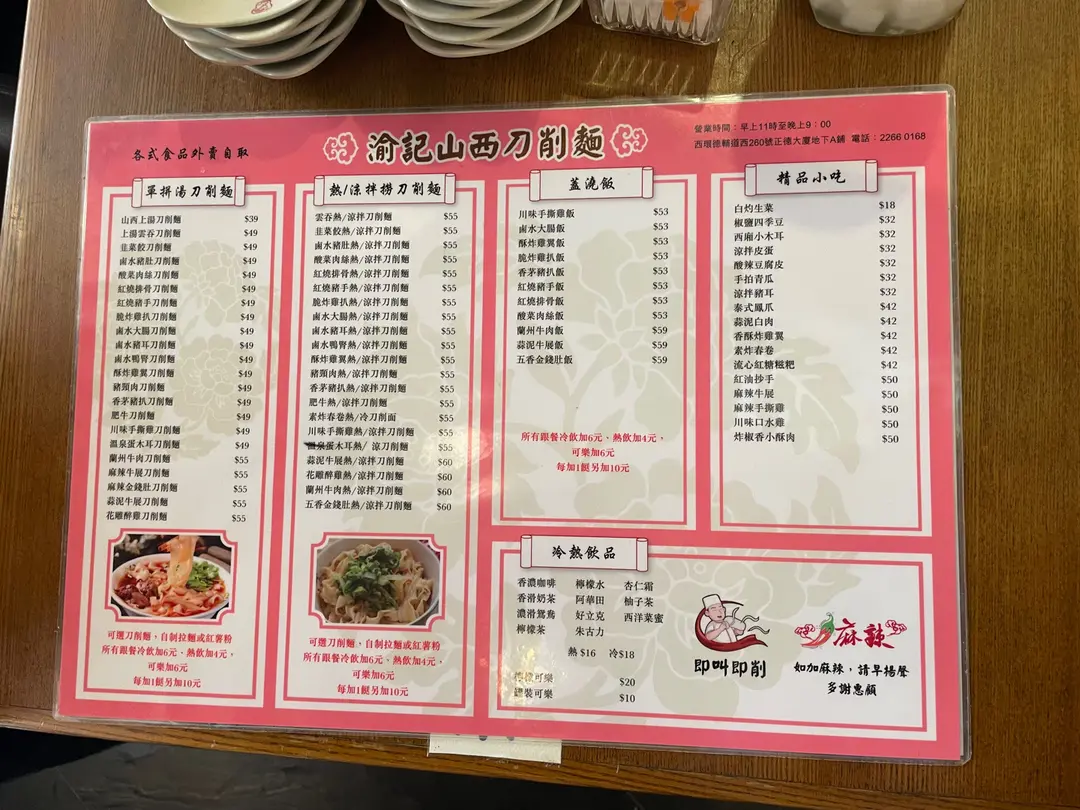 各式食品外賣自取
渝記山西刀削麵
營業時間：早上11時至晚上9：00
西環德輔道西260號正德大廈地下A鋪 電話：2266 0168
單拼湯刀削麵
山西上湯刀削麵 $39
上湯雲吞刀削麵 $49
韭菜餃刀削麵 $49
鹵水豬肚刀削麵 $49
酸菜肉絲刀削麵 $49
紅燒排骨刀削麵 $49
紅燒豬手刀削麵 $49
脆炸雞扒刀削麵 $49
鹵水大腸刀削麵 $49
鹵水豬耳刀削麵 $49
鹵水鴨腎刀削麵 $49
酥炸雞翼刀削麵 $49
豬頸肉刀削麵 $49
香茅豬扒刀削麵 $49
肥牛刀削麵 $49
川味手撕雞刀削麵 $49
溫泉蛋木耳刀削麵 $49
蘭州牛肉刀削麵 $55
麻辣牛展刀削麵 $55
麻辣金錢肚刀削麵 $55
蒜泥牛展刀削麵 $55
花雕醉雞刀削麵 $55
可選刀削麵，自制拉麵或紅薯粉
所有跟餐冷飲加6元、熱飲加4元，
可樂加6元
每加1餸另加10元
熱/涼拌撈刀削麵
雲吞熱/涼拌刀削麵 $55
韭菜餃熱/涼拌刀削麵 $55
鹵水豬肚熱/涼拌刀削麵 $55
酸菜肉絲熱/涼拌刀削麵 $55
紅燒排骨熱/涼拌刀削麵 $55
紅燒豬手熱/涼拌刀削麵 $55
脆炸雞扒熱/涼拌刀削麵 $55
鹵水大腸熱/涼拌刀削麵 $55
鹵水豬耳熱/涼拌刀削麵 $55
鹵水鴨腎熱/涼拌刀削麵 $55
酥炸雞翼熱/涼拌刀削麵 $55
豬頸肉熱/涼拌刀削麵 $55
香茅豬扒熱/涼拌刀削麵 $55
肥牛熱/涼拌刀削麵 $55
素炸春卷熱/冷刀削面 $55
川味手撕雞熱/涼拌刀削麵 $55
溫泉蛋木耳熱/ 涼刀削麵 $55
蒜泥牛展熱/涼拌刀削麵 $60
花雕醉雞熱/涼拌刀削麵 $60
蘭州牛肉熱/涼拌刀削麵 $60
五香金錢肚熱/涼拌刀削麵 $60
可選刀削麵、自制拉麵或紅薯粉
所有跟餐冷飲加6元、熱飲加4元，
可樂加6元
每加1餸另加10元
蓋澆飯
川味手撕雞飯 $53
鹵水大腸飯 $53
酥炸雞翼飯 $53
脆炸雞扒飯 $53
香茅豬扒飯 $53
紅燒豬手飯 $53
紅燒排骨飯 $53
酸菜肉絲飯 $53
蘭州牛肉飯 $59
蒜泥牛展飯 $59
五香金錢肚飯 $59
所有跟餐冷飲加6元、熱飲加4元，
可樂加6元
每加1餸另加10元
精品小吃
白灼生菜 $18
椒鹽四季豆 $32
西廂小木耳 $32
涼拌皮蛋 $32
酸辣豆腐皮 $32
手拍青瓜 $32
涼拌豬耳 $32
泰式鳳爪 $42
蒜泥白肉 $42
香酥炸雞翼 $42
素炸春卷 $42
流心紅糖糍粑 $42
紅油抄手 $50
麻辣牛展 $50
麻辣手撕雞 $50
川味口水雞 $50
炸椒香小酥肉 $50
冷熱飲品
香濃咖啡 檸檬水 杏仁霜
香滑奶茶 阿華田 柚子茶
濃滑鴛鴦 好立克 西洋菜蜜
檸檬茶 朱古力
熱 $16 冷$18
檸檬可樂 $20
罐裝可樂 $10
即叫即削
麻辣
如加麻辣，請早揚聲
多謝惠顧